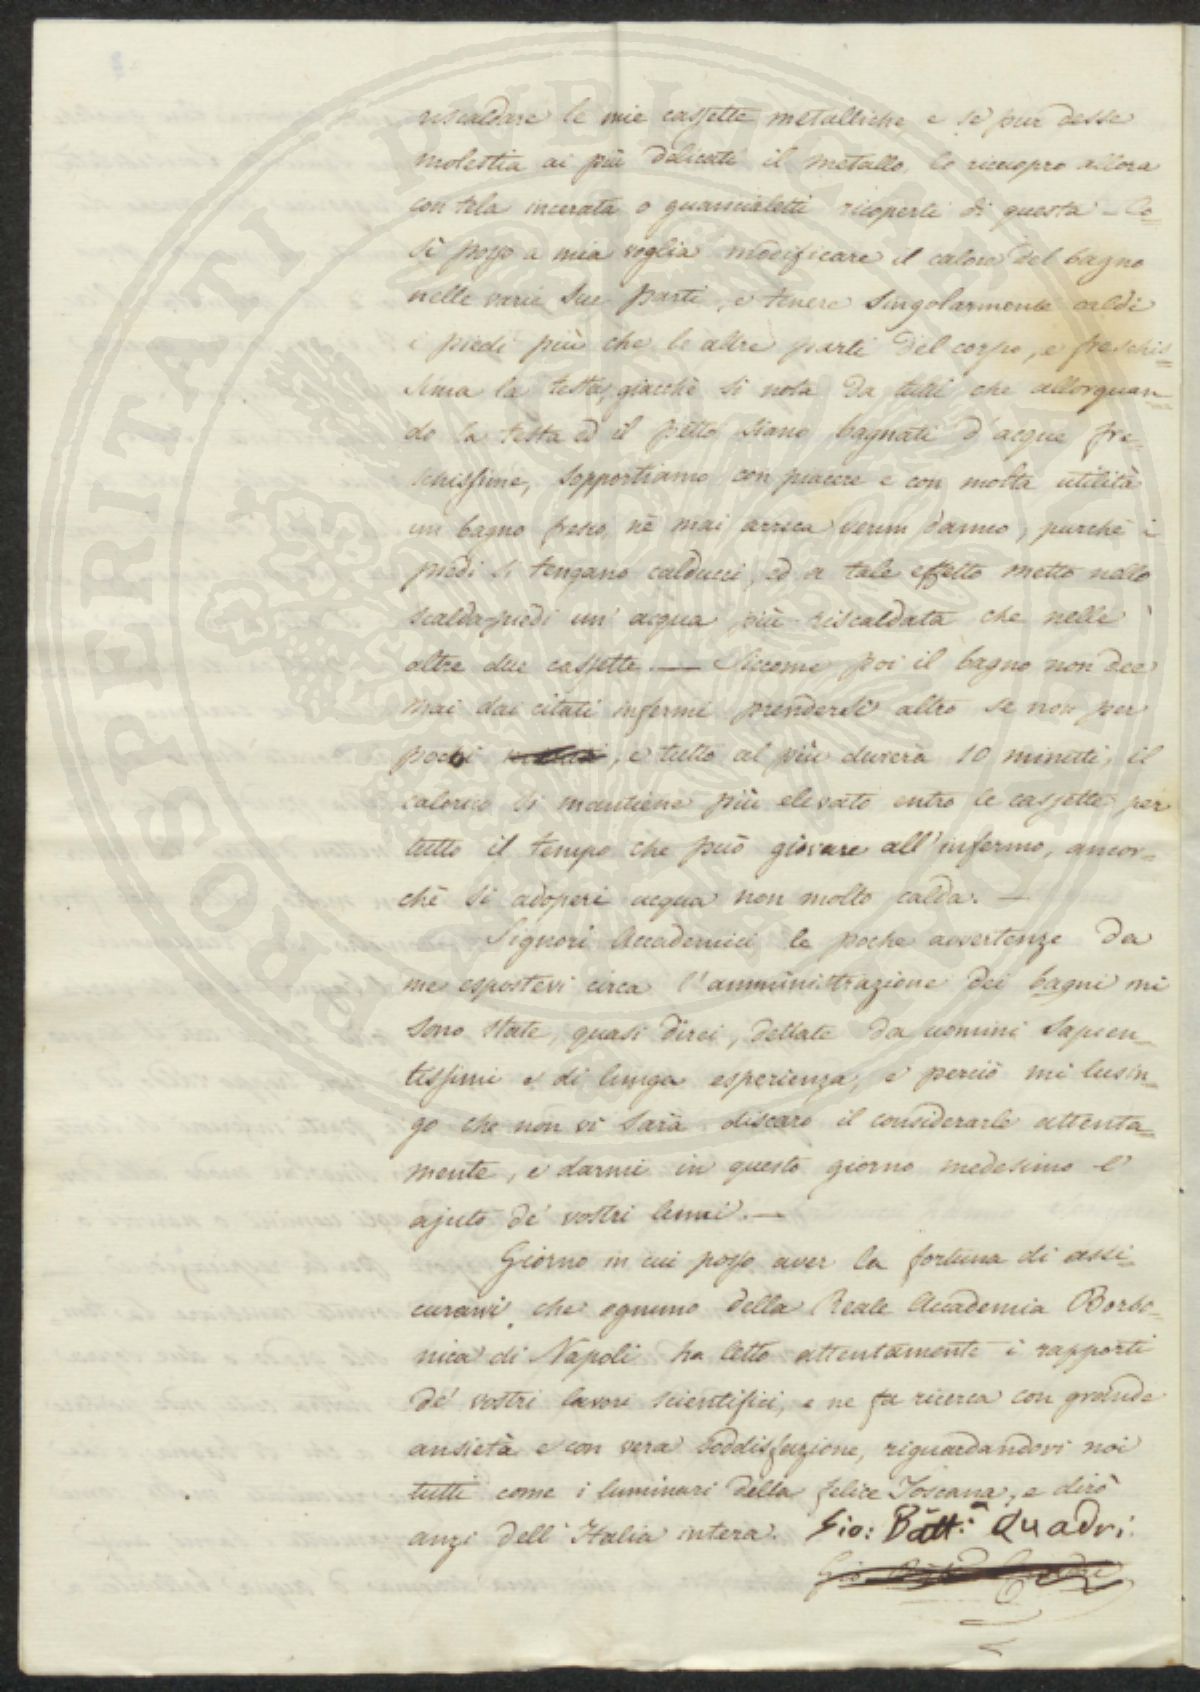 riscaldare le mie cassette metalliche e se pur desse
molestia ai più delicati il metallo, lo ricuopro allora
con tela incerata o guancialetti ricoperti di questa – Co=
sì posso a mia voglia modificare il calore del bagno
nelle varie sue parti, e tenere singolarmente caldi
i piedi più che le altre parti del corpo, e freschis=
sima la testa, giacchè si nota da tutti che allorquan=
do la testa ed il petto siano bagnati d'acque fre=
schissime, sopportiamo con piacere e con molta utilità
un bagno fresco, nè mai arreca verun danno, purchè i
piedi si tengano calducci, ed a tale effetto metto nello
scalda-piedi un' acqua più riscaldata che nelle
altre due cassette — Siccome poi il bagno non dee
mai dai citati infermi prendersi altro se non per
pochi, e tutto al più durerà 10 minuti, il
calorico si mantiene più elevato entro le cassette per
tutto il tempo che può giovare all'infermo, ancor=
chè si adoperi acqua non molto calda. —
Signori Accademici le poche avvertenze da
me espostevi circa l'amministrazione dei bagni mi
sono state, quasi direi, dettate da uomini sapien=
tissimi e di lunga esperienza, e perciò mi lusin=
go che non vi sarà discaro il considerarle attenta=
mente, e darmi in questo giorno medesimo l'
ajuto de' vostri lumi. —
Giorno in cui posso aver la fortuna di assi=
curarvi che ognuno della Reale Accademia Borbo=
nica di Napoli ha letto attentamente i rapporti
de' vostri lavori scientifici, e ne fa ricerca con grande
ansietà e con vera soddisfazione, riguardandovi noi
tutti come i luminari della felice Toscana, e dirò
anzi dell' Italia intera. Gio: Batt:a Quadri.
PROSPERITATI PUBLICAE